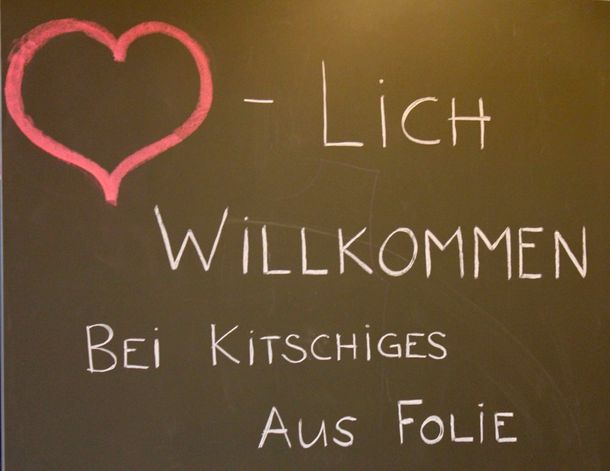 - LiCH
WiLLKOMMEN
BEi KiTSCHiGES
AUS FOLiE